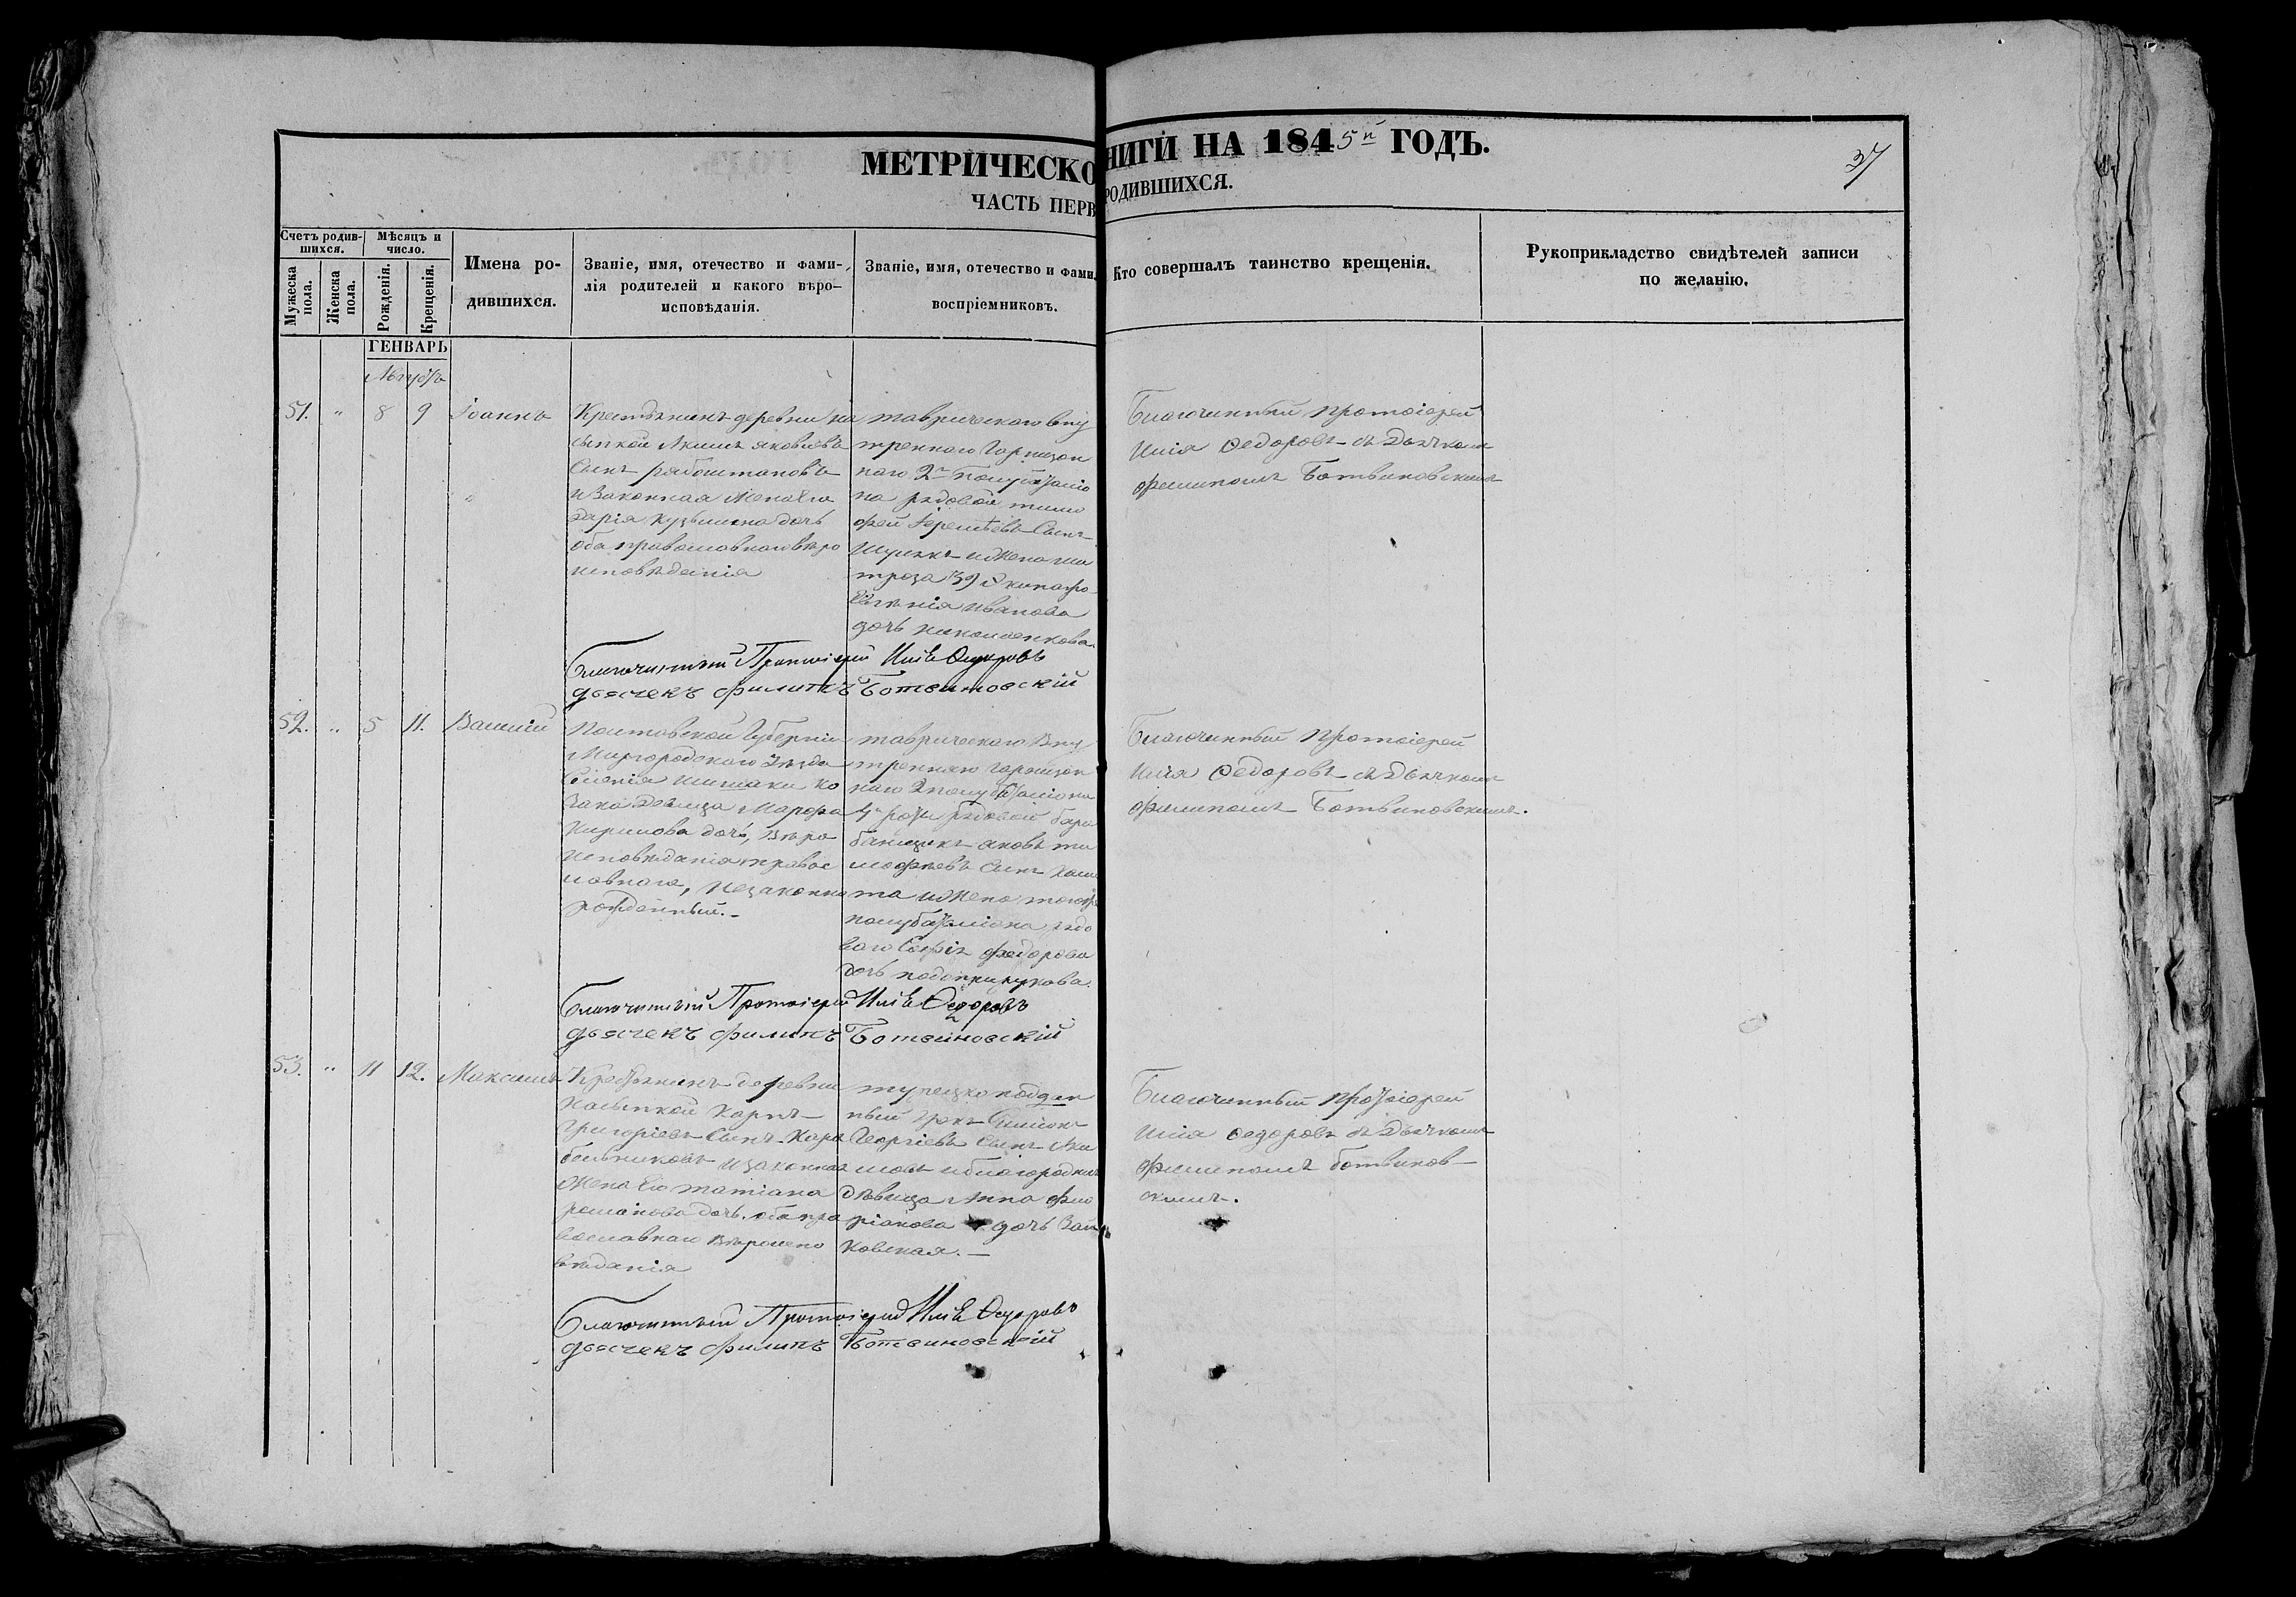 МЕТРИЧЕСКО НИГИ НА 1845й ГОДЪ.
37
ЧАСТЬ ПЕРВ РОДИВШИХСЯ.
Счетъ родив-
шихся.
Мѣсяцъ и
число.
Мужеска
пола.
Женска
пола.
Рожденія.
Крещенія.
Имена ро-
дившихся.
Званіе, имя, отечество и фами-
лія родителей и какого вѣро-
исповѣданія.
Званіе, имя, отечество и фами
воспріемниковъ.
Кто совершалъ таинство крещенія.
Рукоприкладство свидѣтелей записи
по желанію.
ГЕНВАРЬ
51. " 8 9 Іоаннъ
Крестьянинъ деревни на
сыпкой Якимъ яковлевъ
Сынъ
изаконная Жена Его
дарія кузьмина дочь
оба православнаго вѣро
исповѣданія
таврическаго вну
тренняго Гарнизон
наго 2го Полубаталіо
на рядовой тимо
фей Сынъ
и Жена ма
троза 39 Экипажа
Иванова
дочь
Благочинный протоіерей
Илія Федоровъ съ Дьячкомъ
филипомъ Ботвиновскимъ
Благочинный Протоіерей Илія Федоровъ
дьячекъ филипъ Ботвиновскій
52. " 5 11. Василій
Полтавской Губерніи
Миргородского Уѣзда
Селенія шишаки ко
зака Девица Марфа
Кирилова дочь, вѣро
исповѣданія правос
лавнаго, незаконно
рожденный.-
таврическаго Вну
тренняго гарнизон
наго 2 полубаталіона
4й роты рядовой бара
банщикъ яковъ ти
мофѣевъ Сынъ
та и Жена тогоже
полубаталіона рядо
ваго Софія федорова
дочь
Благочинный протоіерей
Илія Федоровъ съ Дьячкомъ
филипомъ Ботвиновскимъ.
Благочинный Протоіерей Илія Федоровъ
дьячекъ филипъ Ботвиновскій
53. " 11 12. Максимъ
Крестьянинъ деревни
Насыпкой Карпъ
Григоріевъ Сынъ Кара
бельниковъ изаконная
Жена Его татіана
романова дочь. оба пра
вославнаго Вѣроиспо
вѣданія
турецкоподдан
ный Грекъ Симіонъ
Георгіевъ Сынъ
и благородная
дѣвица Анна фло
ріанова дочь
ковская.—
Благочинный протоіерей
Илія Федоровъ съ Дьячкомъ
филипомъ ботвинов-
скимъ.
Благочинный Протоіерей Илія Федоровъ
дьячекъ филипъ Ботвиновскій